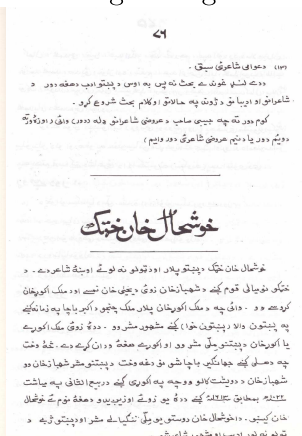 ۷۶
(۱۳) دعوامی شاعری سبق .
ددے لنډ غوندے بحث نه پس به اوس د پښتو ادب دهغه دور د
شاعرانو او ادیبانو د ژوند په حالاتو او کلام بحث شروع کړو .
کوم دور ته چه حبیبی صاحب د عروضی شاعرانو دله ددور) وائی (او زۀ ورته
دویم دور یا دنیم عروضی شاعری دور وایم)
خوشحال خان خټک
خوشحال خان خټک د پښتو پلار اود ټولو نه لوئے اوښۀ شاعر دے . د
خټکو قوم کښے د شهباز خان زوئ د یحیٰی خان نمسے اود ملک اکوړ خان
کړوسے وو . وائی چه د ملک اکوړ خان پلار ملک چنجو د اکبر باچا په زمانه کښے
په پښتون والا د پښتون خوا کښے مشهور مشر وو . ددۀ زوئ ملک اکوړے
یا اکوړ خان د پښتنو ملی مشر وو او اکوړے هغۀ ودان کړے دے . کله
چه دهلی کښے جهانګیر باچا شو نو دغه وخت د پښتنو مشر شهباز خان وو
شهباز خان د ویشت کالو وو چه په اکوړی کښے د ربیع الثانی په میاشت
۱۰۲۲ھ بمطابق ۱۶۱۳ء کښے ددۀ یو زوئے اوزیږیدو دهغۀ نوم ئے خوشحال
خان کیښو . دا خوشحال خان روستو یو ملی ننګیالے مشر اود پښتو ژبے د